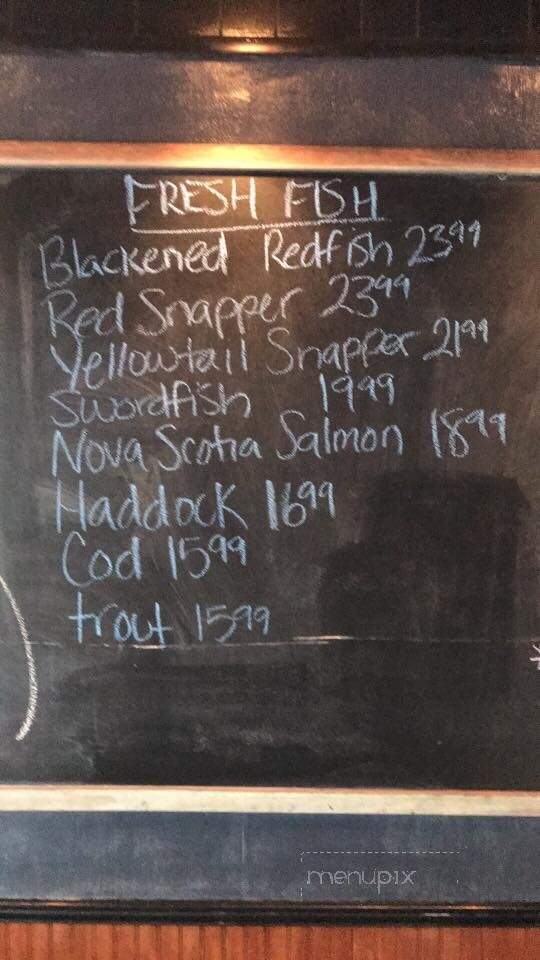 FRESH FISH
Blackened Redfish 2399
Red Snapper 2399
Yellowtail Snapper 2199
Swordfish 1999
Nova Scotia Salmon 1899
Haddock 1699
Cod 1599
trout 1599
menupix